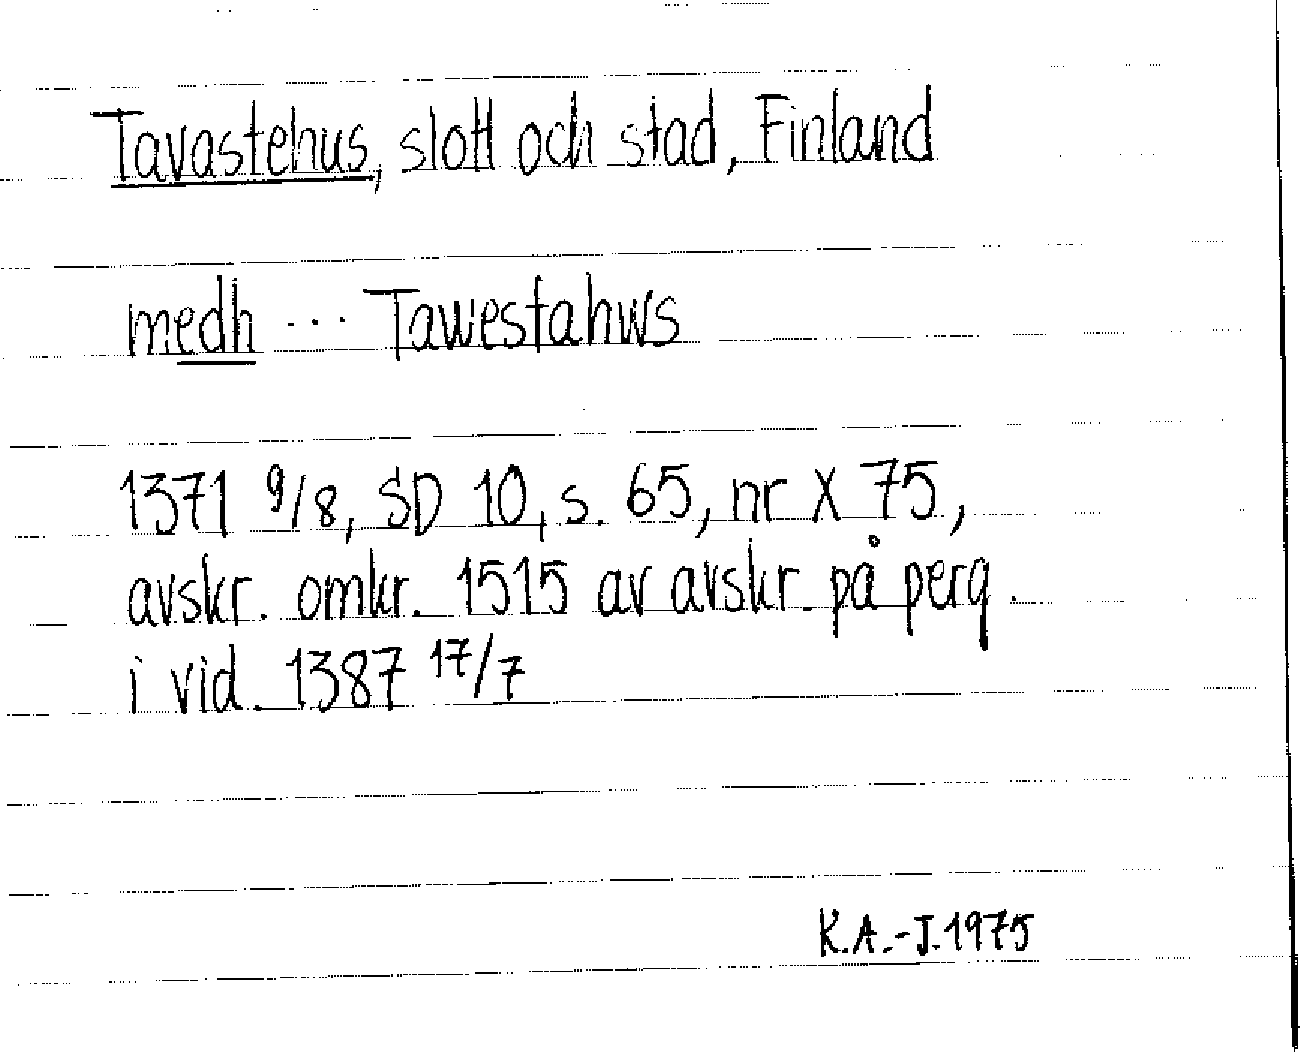 Tavastehus, slott och stad, Finland
medh ... Tawestahws
1371 9/8, SD 10, s. 65, nr X 75,
avskr. omkr. 1515 av avskr. på perg.
i vid. 1387 17/7
K.A.-J. 1975